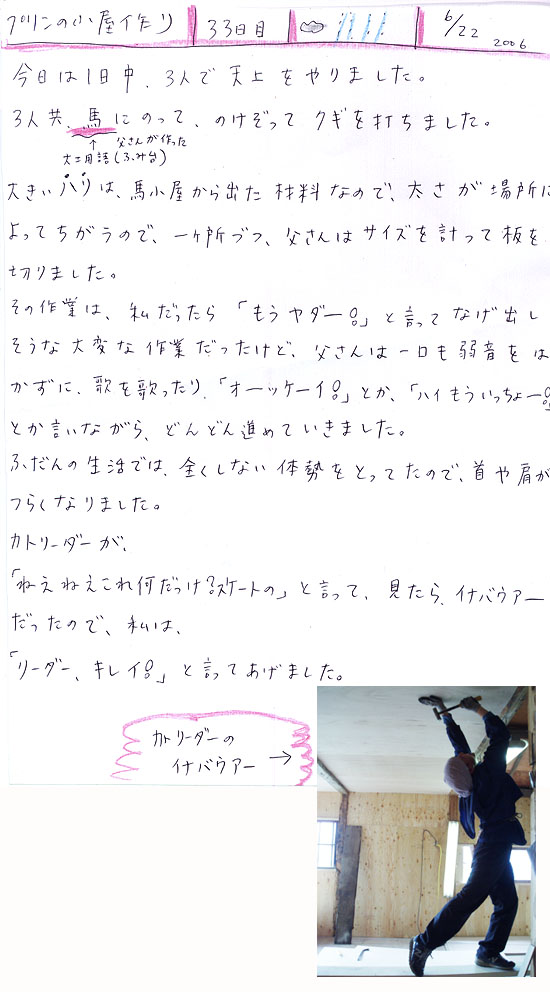 プリンの小屋作り 33日目 6/22 2006
今日は1日中、3人で天上をやりました。
3人共、馬にのって、のけぞってクギを打ちました。
↑ 父さんが作った
大工用語(ふみ台)
大きいハリは、馬小屋から出た材料なので、太さが場所に
よってちがうので、一ヶ所づつ、父さんはサイズを計って板を
切りました。
その作業は、私だったら「もうヤダー!。」と言ってなげ出し
そうな大変な作業だったけど、父さんは一口も弱音をは
かずに、歌を歌ったり、「オーッケーイ!。」とか、「ハイもういっちょー!。」
とか言いながら、どんどん進めていきました。
ふだんの生活では、全くしない体勢をとってたので、首や肩が
つらくなりました。
カトリーダーが、
「ねえねえこれ何だっけ?スケートの」と言って、見たら、イナバウアー
だったので、私は、
「リーダー、キレイ!。」と言ってあげました。
カトリーダーの
イナバウアー →